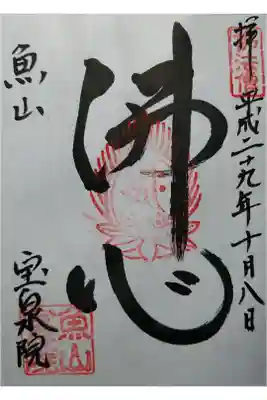 拝平成二十九年十月八日
佛心
魚山
宝泉院
魚山